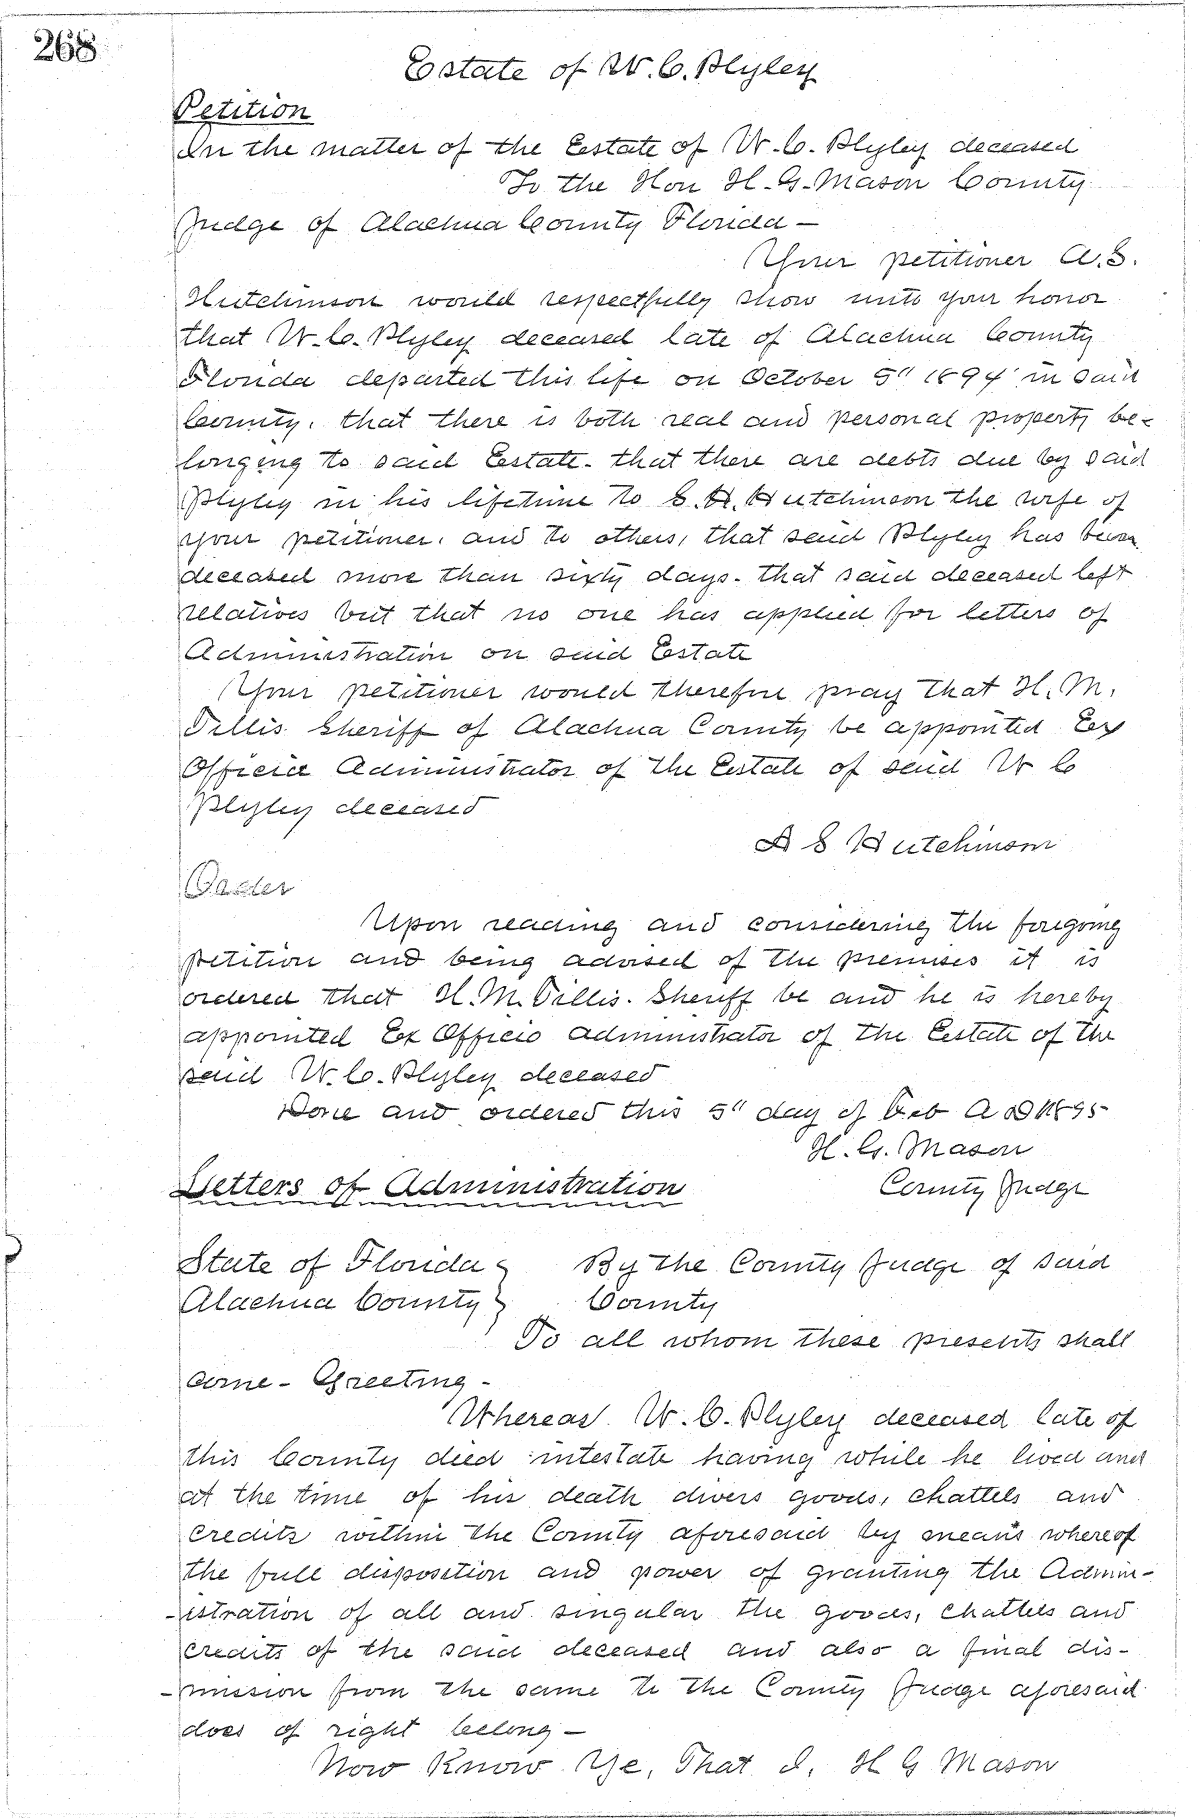 268
Estate of W. C. Plyley
Petition
In the matter of the Estate of W. C. Plyley deceased
To the Hon H. G. Mason County
Judge of Alachua County Florida —
Your petitioner A. S.
Hutchinson would respectfully show unto your honor
that W. C. Plyley deceased late of Alachua County
Florida departed this life on October 5" 1894 in said
County, that there is both real and personal property be-
longing to said Estate. that there are debts due by said
Plyley in his lifetime to S. H. Hutchinson the wife of
your petitioner, and to others, that said Plyley has been
deceased more than sixty days. that said deceased left
relatives but that no one has applied for letters of
Administration on said Estate
Your petitioner would therefore pray that H. M.
Tillis Sheriff of Alachua County be appointed Ex
Officio Administrator of the Estate of said W C
Plyley deceased
A S Hutchinson
Order
Upon reading and considering the foregoing
petition and being advised of the premises it is
ordered that H. M. Tillis. Sheriff be and he is hereby
appointed Ex Officio administrator of the Estate of the
said W. C. Plyley deceased
Done and ordered this 5" day of Feb A D 1895
H. G. Mason
Letters of Administration County Judge
State of Florida } By the County Judge of said
Alachua County } County
To all whom these presents shall
come - Greeting -
Whereas W. C. Plyley deceased late of
this County died intestate having while he lived and
at the time of his death divers goods, chattels and
credits within the County aforesaid by means whereof
the full disposition and power of granting the Admin-
-istration of all and singular the goods, chattels and
credits of the said deceased and also a final dis-
-mission from the same to the County Judge aforesaid
does of right belong —
Now Know Ye, That I, H G Mason